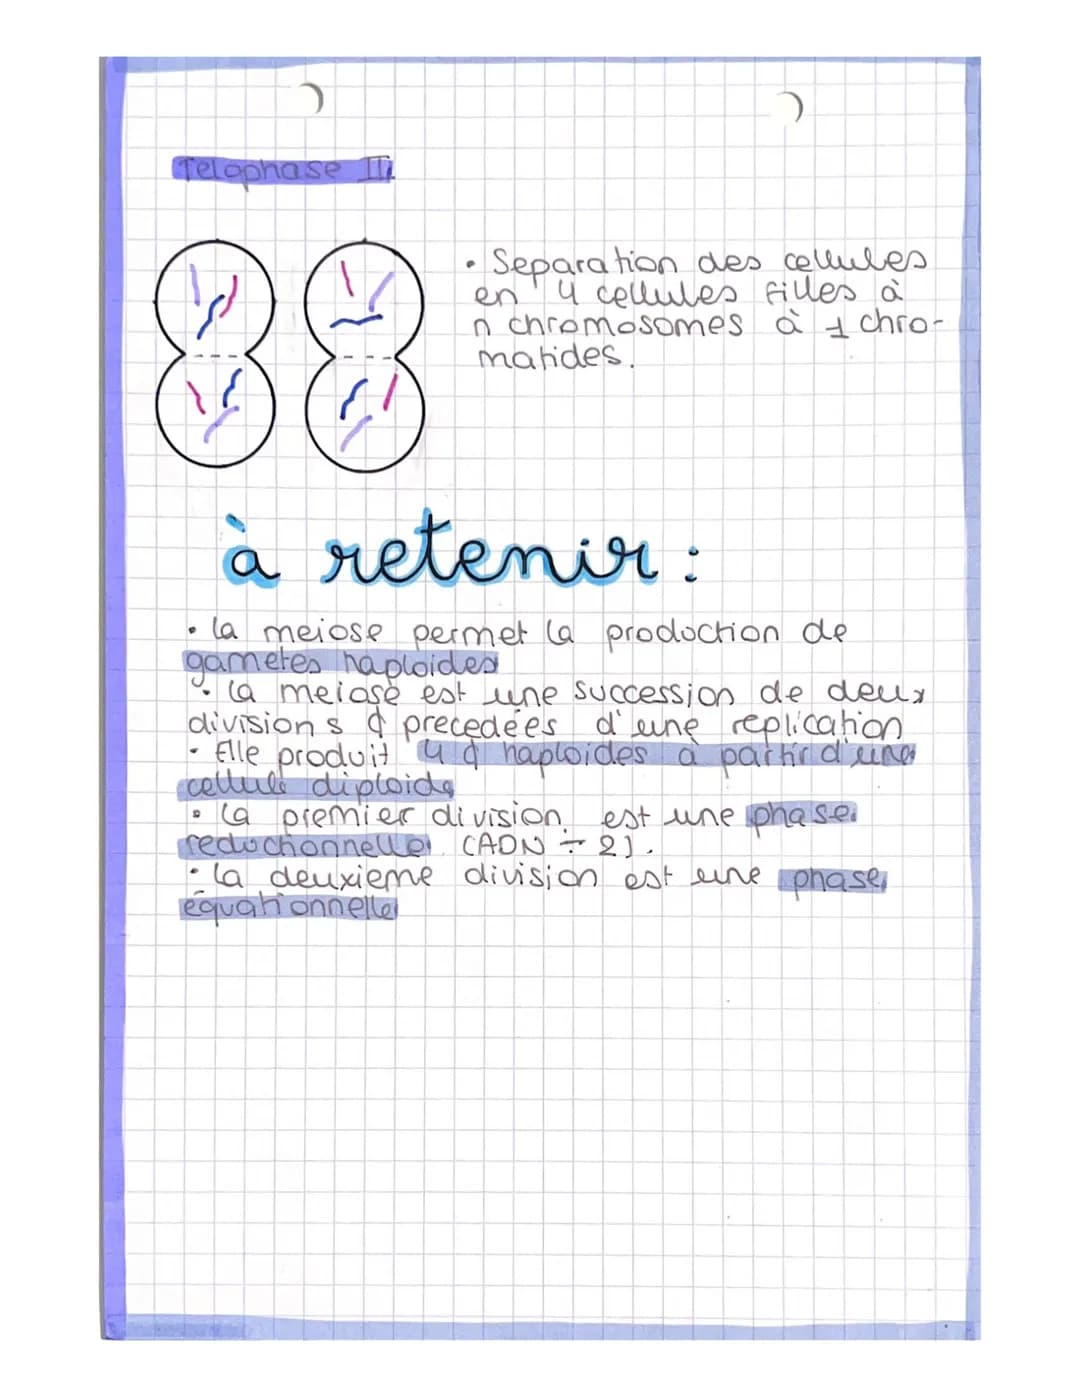 Telophase II
• Separation des cellules
en 4 cellules filles à
n chromosomes à 1 chro-
matides.
à retenir :
• la meiose permet la production de
gametes haploides
• la meiose est une succession de deux
divisions ¢ precedées d'une replication
• Elle produit 4 ¢ haploides à partir d'une
cellule diploide
• la premier division est une phase
reductionnelle (ADN ÷ 2).
• la deuxieme division est une phase
équationnelle